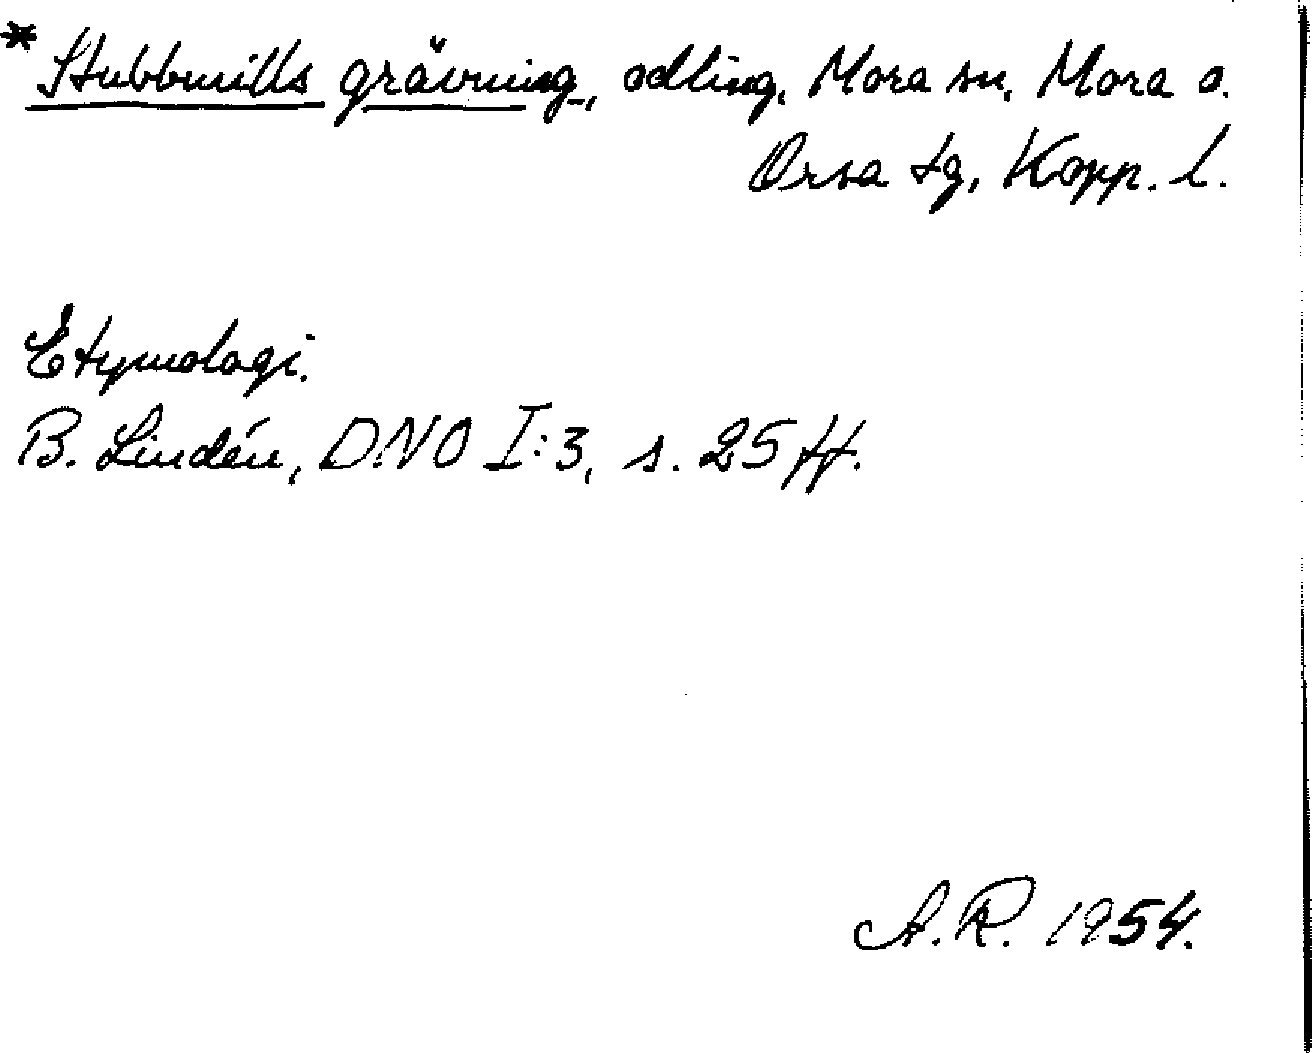 * Stubbnills grävning, odling, Mora sn, Mora o.
Orsa tg, Kopp. l.
Etymologi.
B. Lindén, DNO I:3, s. 25 ff.
A.R. 1954.